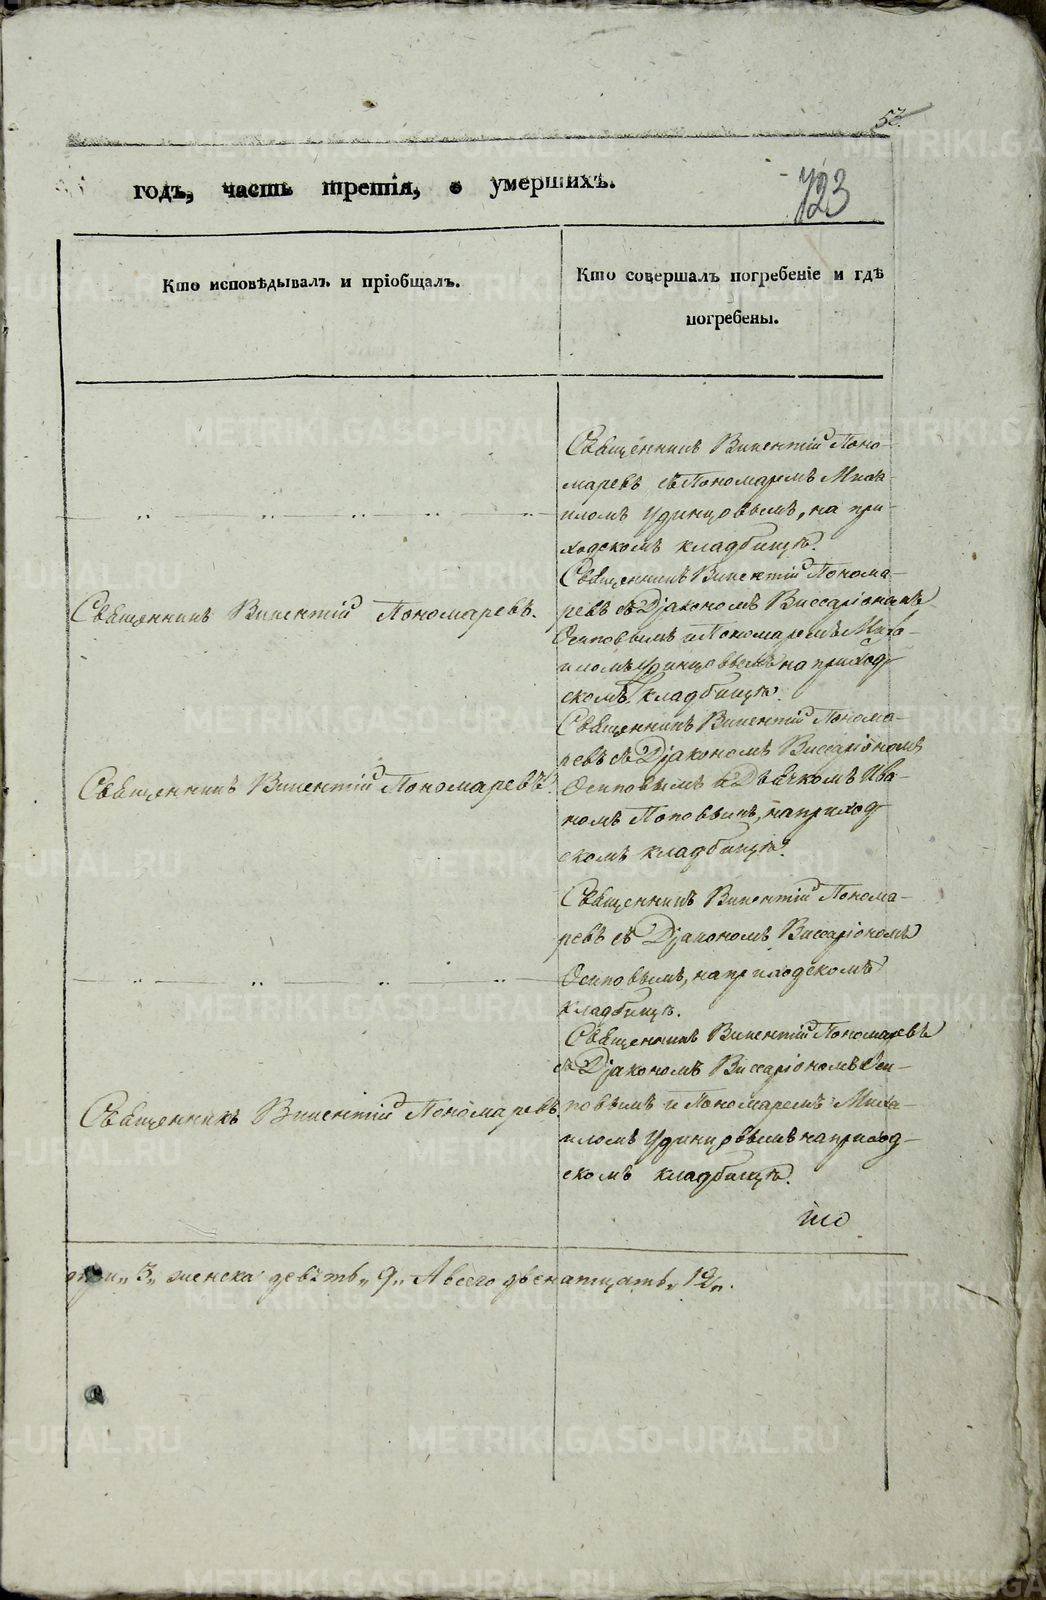 годъ, часть третія, о умершихъ.
123
Кто исповѣдывалъ и пріобщалъ.
Кто совершалъ погребеніе и гдѣ
погребены.
Священникъ Викентій Поно-
маревъ съ Пономаремъ Миха-
иломъ Удинцовымъ, на при-
ходскомъ кладбищѣ.
Священникъ Викентій Пономаревъ.
Священникъ Викентій Понома-
ревъ съ Діакономъ Виссаріономъ
Осиповымъ и Пономаремъ Миха-
иломъ Удинцовымъ на приход-
скомъ кладбищѣ.
Священникъ Викентій Пономаревъ.
Священникъ Викентій Понома-
ревъ съ Діакономъ Виссаріономъ
Осиповымъ и Дьячкомъ Ива-
номъ Поповымъ, на приход
скомъ кладбищѣ.
Священникъ Викентій Понома-
ревъ съ Діакономъ Виссаріономъ
Осиповымъ, на приходскомъ
кладбищѣ.
Священникъ Викентій Пономаревъ.
Священникъ Викентій Пономаревъ
съ Діакономъ Виссаріономъ Оси-
повымъ и Пономаремъ Миха-
иломъ Удинцовымъ на приход-
скомъ кладбищѣ.
„3„ женска девѣть „9„ А всего двенатцать „12„.
METRIKI.GASO-URAL.RU